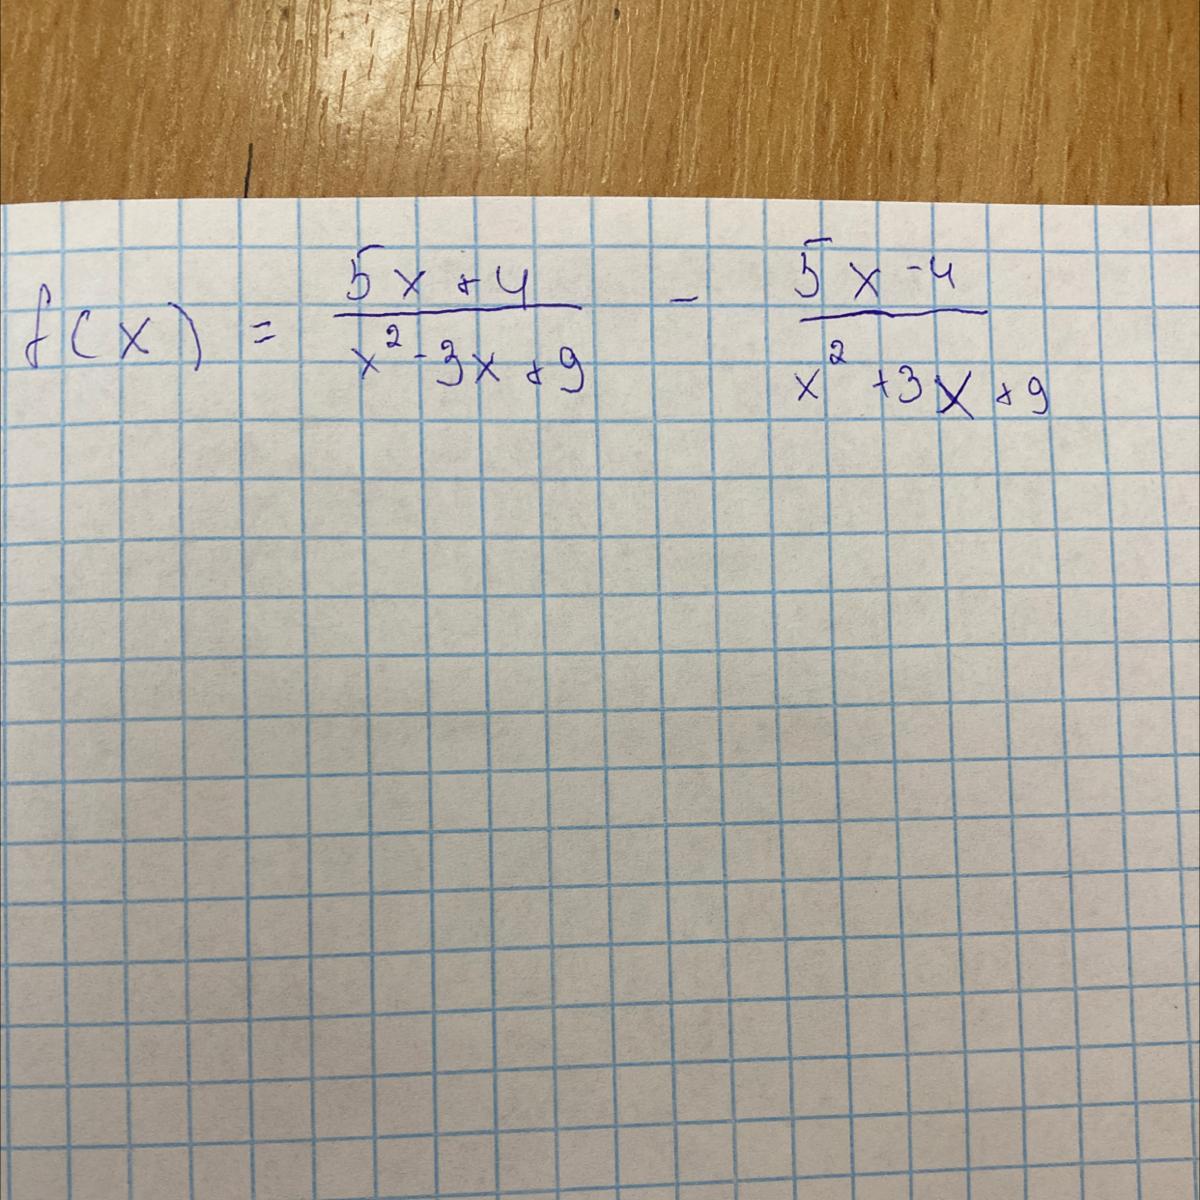 f(x) = \frac{5x+4}{x^2-3x+9} - \frac{5x-4}{x^2+3x+9}